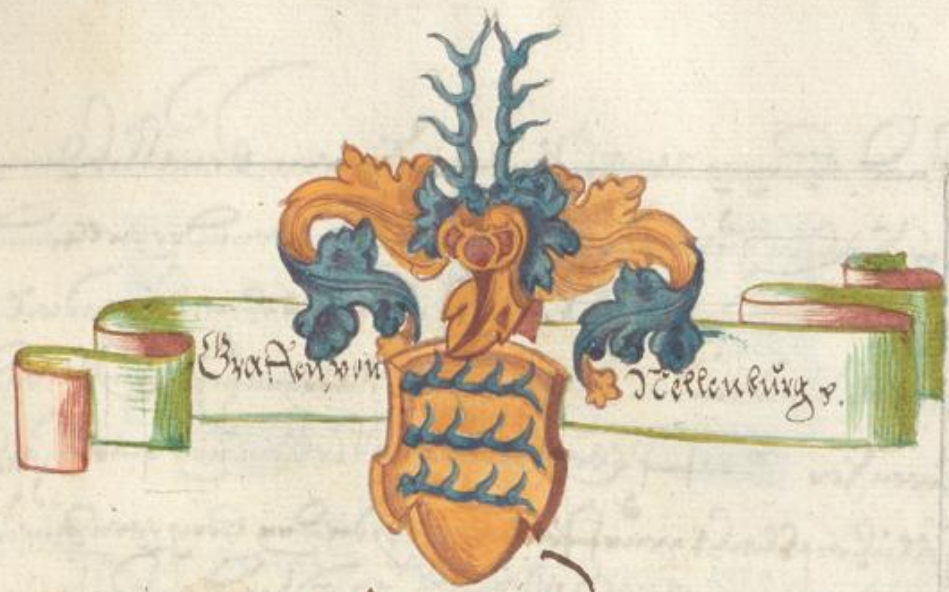 Graffen, von Nellenburg v.